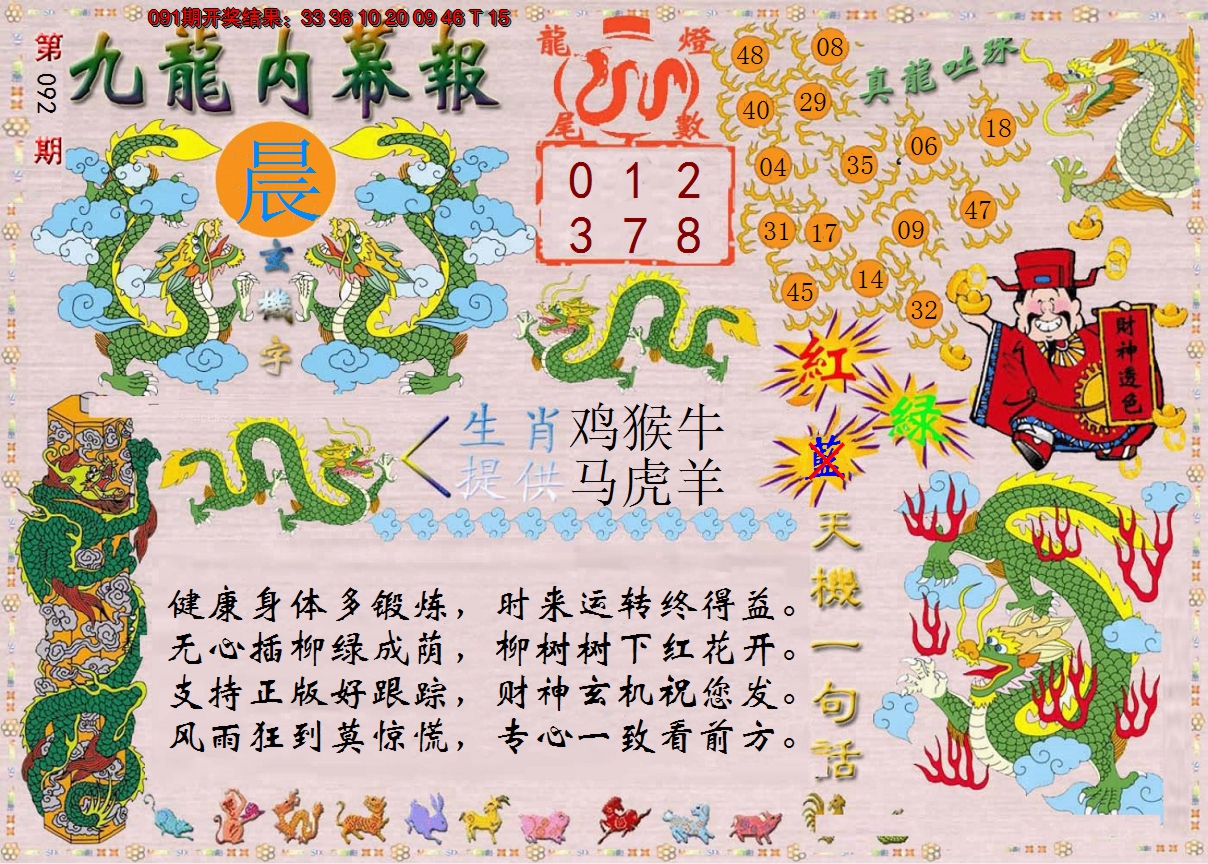 091期开奖结果：33 36 10 20 09 46 T 15
第092期
九龍内幕報
晨
玄機字
龍燈尾數
0 1 2
3 7 8
真龍吐珠
48 08
40 29
04 35 06 18
31 17 09 47
45 14 32
財神透色
紅
绿
藍
生肖提供
鸡猴牛
马虎羊
天機一句話
健康身体多锻炼，时来运转终得益。
无心插柳绿成荫，柳树树下红花开。
支持正版好跟踪，财神玄机祝您发。
风雨狂到莫惊慌，专心一致看前方。